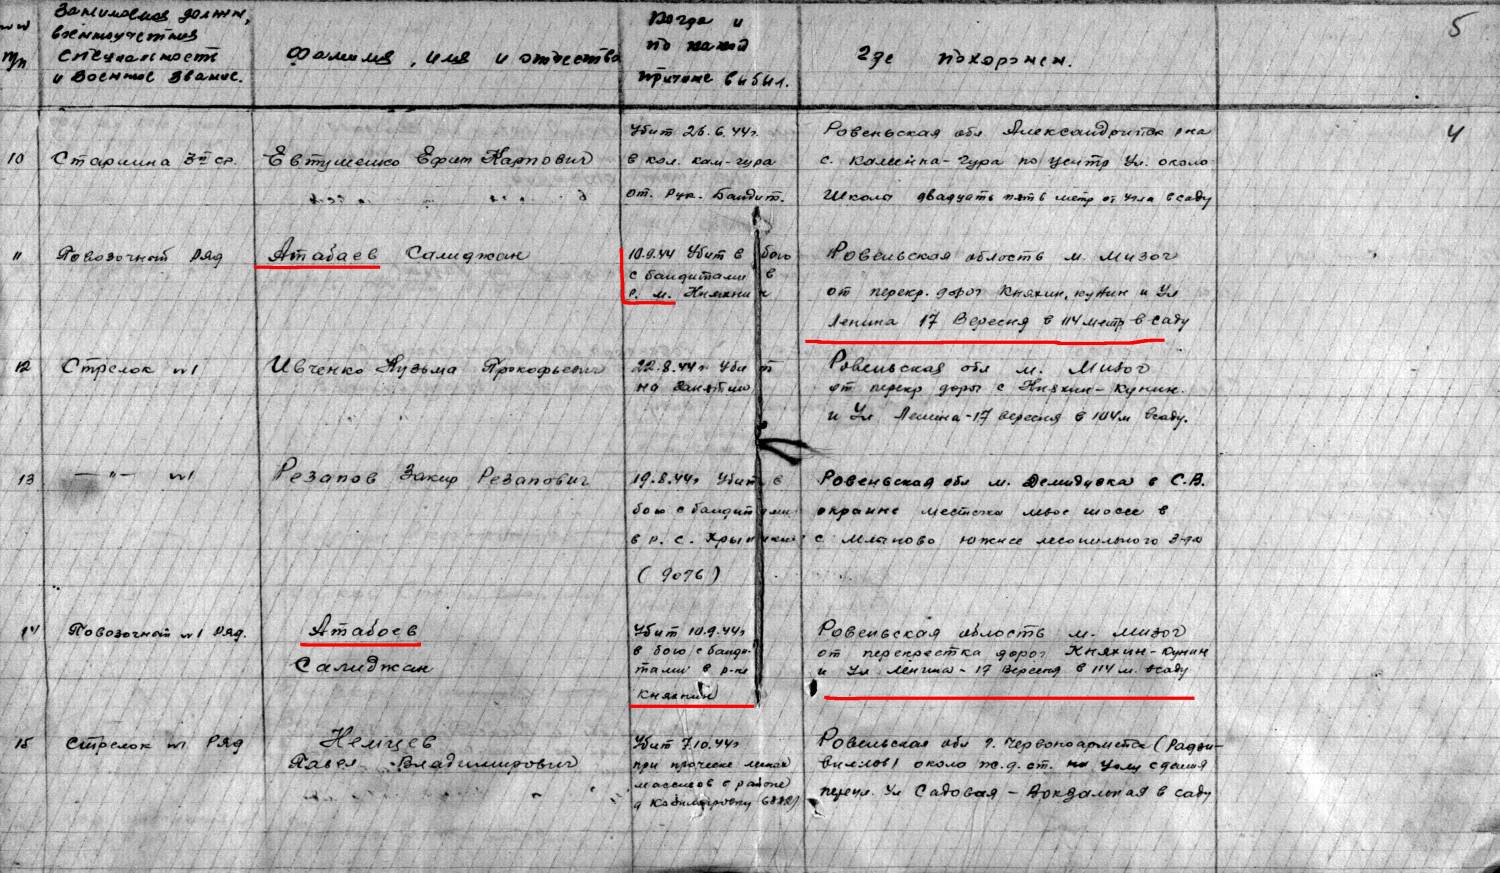 5
№№ п/п
Занимаемая должн,
военноучетная
специальность
и Военное Звание.
Фамилия, имя и отчество
Когда и
по какой
причине выбыл.
Где похоронен.
4
10
Старшина 3й ср.
Евтушенко Ефим Карпович
Убит 26.6.44г.
в кол. кам-гура
от. рук. Бандит.
Ровеньская обл Александрийск рна
с. Каменка-Гура по центр Ул. около
Школы двадцать пять метр от угла в саду
11
Повозочный Ряд
Атабаев Салиджан
10.9.44 Убит в бою
с бандитами в
р. м. Княхин
Ровеньская область м. Мизоч
от перекр. дорог Княхин, кунин и Ул
Ленина 17 Вересня в 114 метр в саду
12
Стрелок №1
Ивченко Кузьма Прокофьевич
22.8.44г Убит
на занятии
Ровеньская обл м. Мизоч
от перекр дорог с Княхин-Кунин.
и Ул Ленина-17 вересня в 104м в саду.
13
— " — №1
Резапов Закир Резапович
19.8.44г Убит в
бою с бандитами
в р. с. Хрынники
(9076)
Ровеньская обл м. Демидувка в С.В.
окраине местечка
с Млыново южнее лесопильного З-да
14
Повозочный №1 Ряд.
Атабоев
Салиджан
Убит 10.9.44г
в бою с банди-
тами в р-не
Княхнин
Ровеньская область м. Мизоч
от перекрестка дорог Княхин-Кунин
и Ул Ленина-17 Вересня в 114 м. в саду
15
Стрелок №1 Ряд
Немцев
Павел Владимирович
Убит 7.10.44г
при прочёске лесных
массивов в районе
Ровеньская обл г. Червоноармейск (Радзи-
виллов) около ж.д.ст. на углу здания
перул. Ул Садовая - Вокзальная в саду